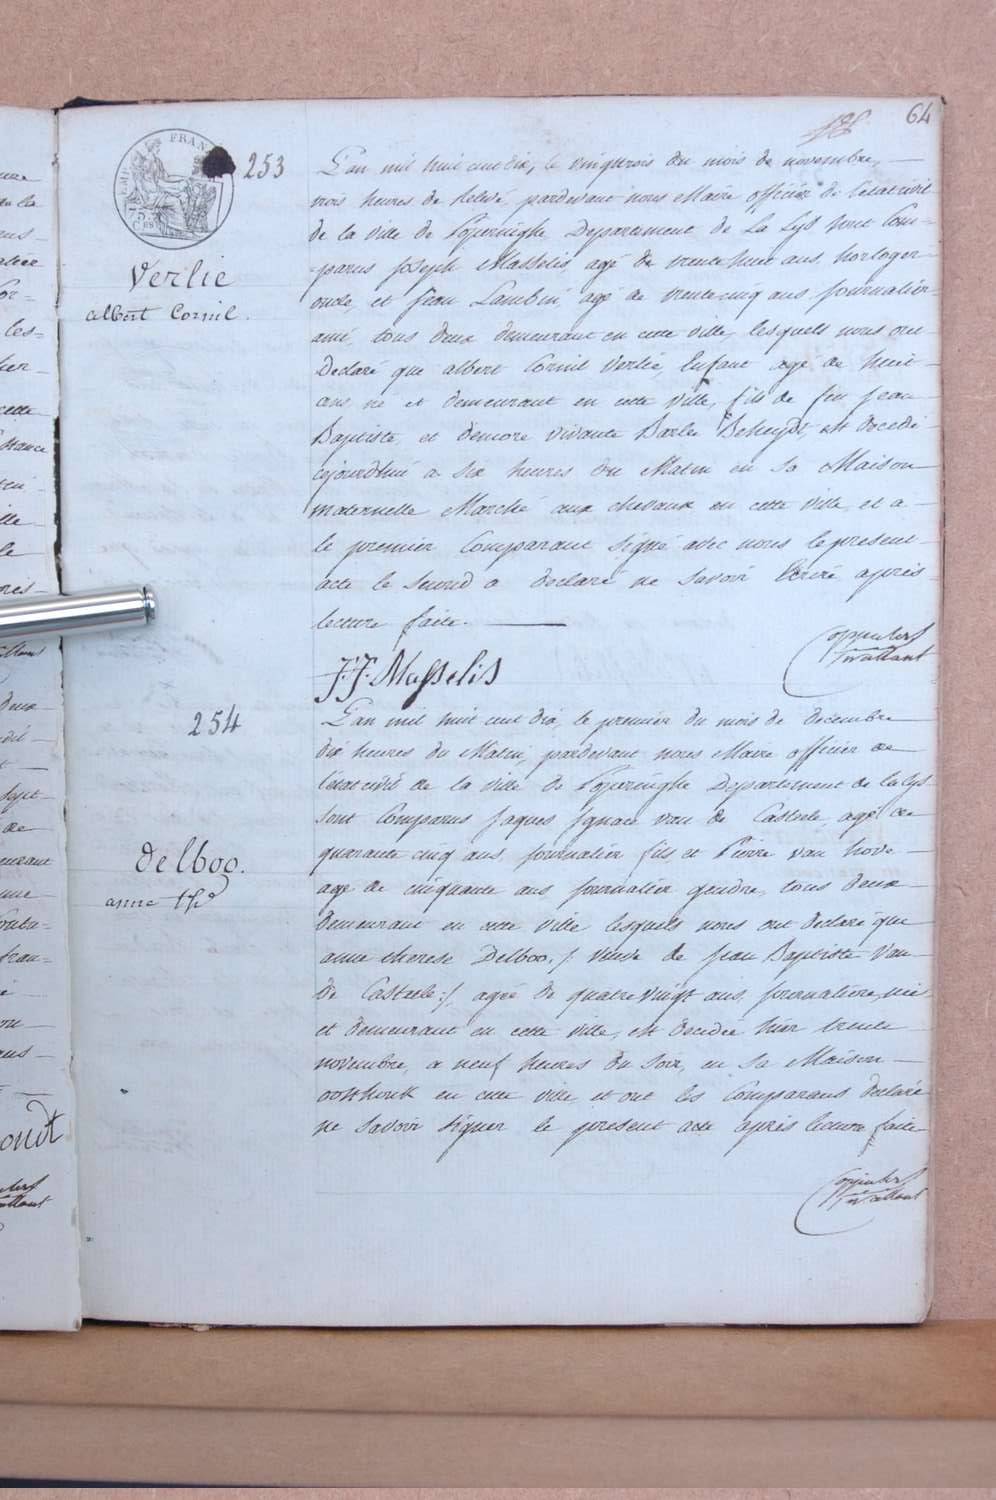 64
253
Verlie
albert Cornil.
L'an mil huit cent dix, le vingtrois du mois de novembre,
trois heures de relevé, pardevant nous Maire officier de l'état civil
de la ville de Poperinghe Departement de La Lys sont Com-
-parus Joseph Masselis agé de trente huit ans, horloger
oncle, et Jean Lambin agé de trente cinq ans, journalier
ami, tous deux demeurant en cette ville, lesquels nous ont
Declaré que albert Cornil Verlie, Enfant agé de huit
ans né et demeurant en cette ville, fils de feu Jean
Baptiste, et d'encore vivante Barbe Beheydt, est decedé
cejourdhui a six heures du Matin en sa Maison
maternelle Marché aux chevaux en cette ville, et a
le premier Comparant Signé avec nous le present
acte le second a declaré ne savoir Ecrire après
lecture faite.
J: J: Masselis
254
Delboo.
anne Th.
L'an mil huit cent dix, le premier du mois de decembre
dix heures du Matin, pardevant nous Maire officier de
l'état civil de la ville de Poperinghe Departement de la Lys
sont Comparus Jaques Ignace van de Casteele, agé de
quarante cinq ans, journalier fils et Pierre van hove
agé de cinquante ans journalier gendre, tous deux
demeurant en cette ville lesquels nous ont declaré que
anne therese Delboo, /: veuve de Jean Baptiste Van
de Casteele :/, agée de quatre vingt ans, journaliere, née
et demeurant en cette ville, est decedée hier trente
novembre, a neuf heures du soir, en sa Maison
oosthouk en cette ville, et ont les Comparans declaré
ne savoir signer le present acte après lecture faite